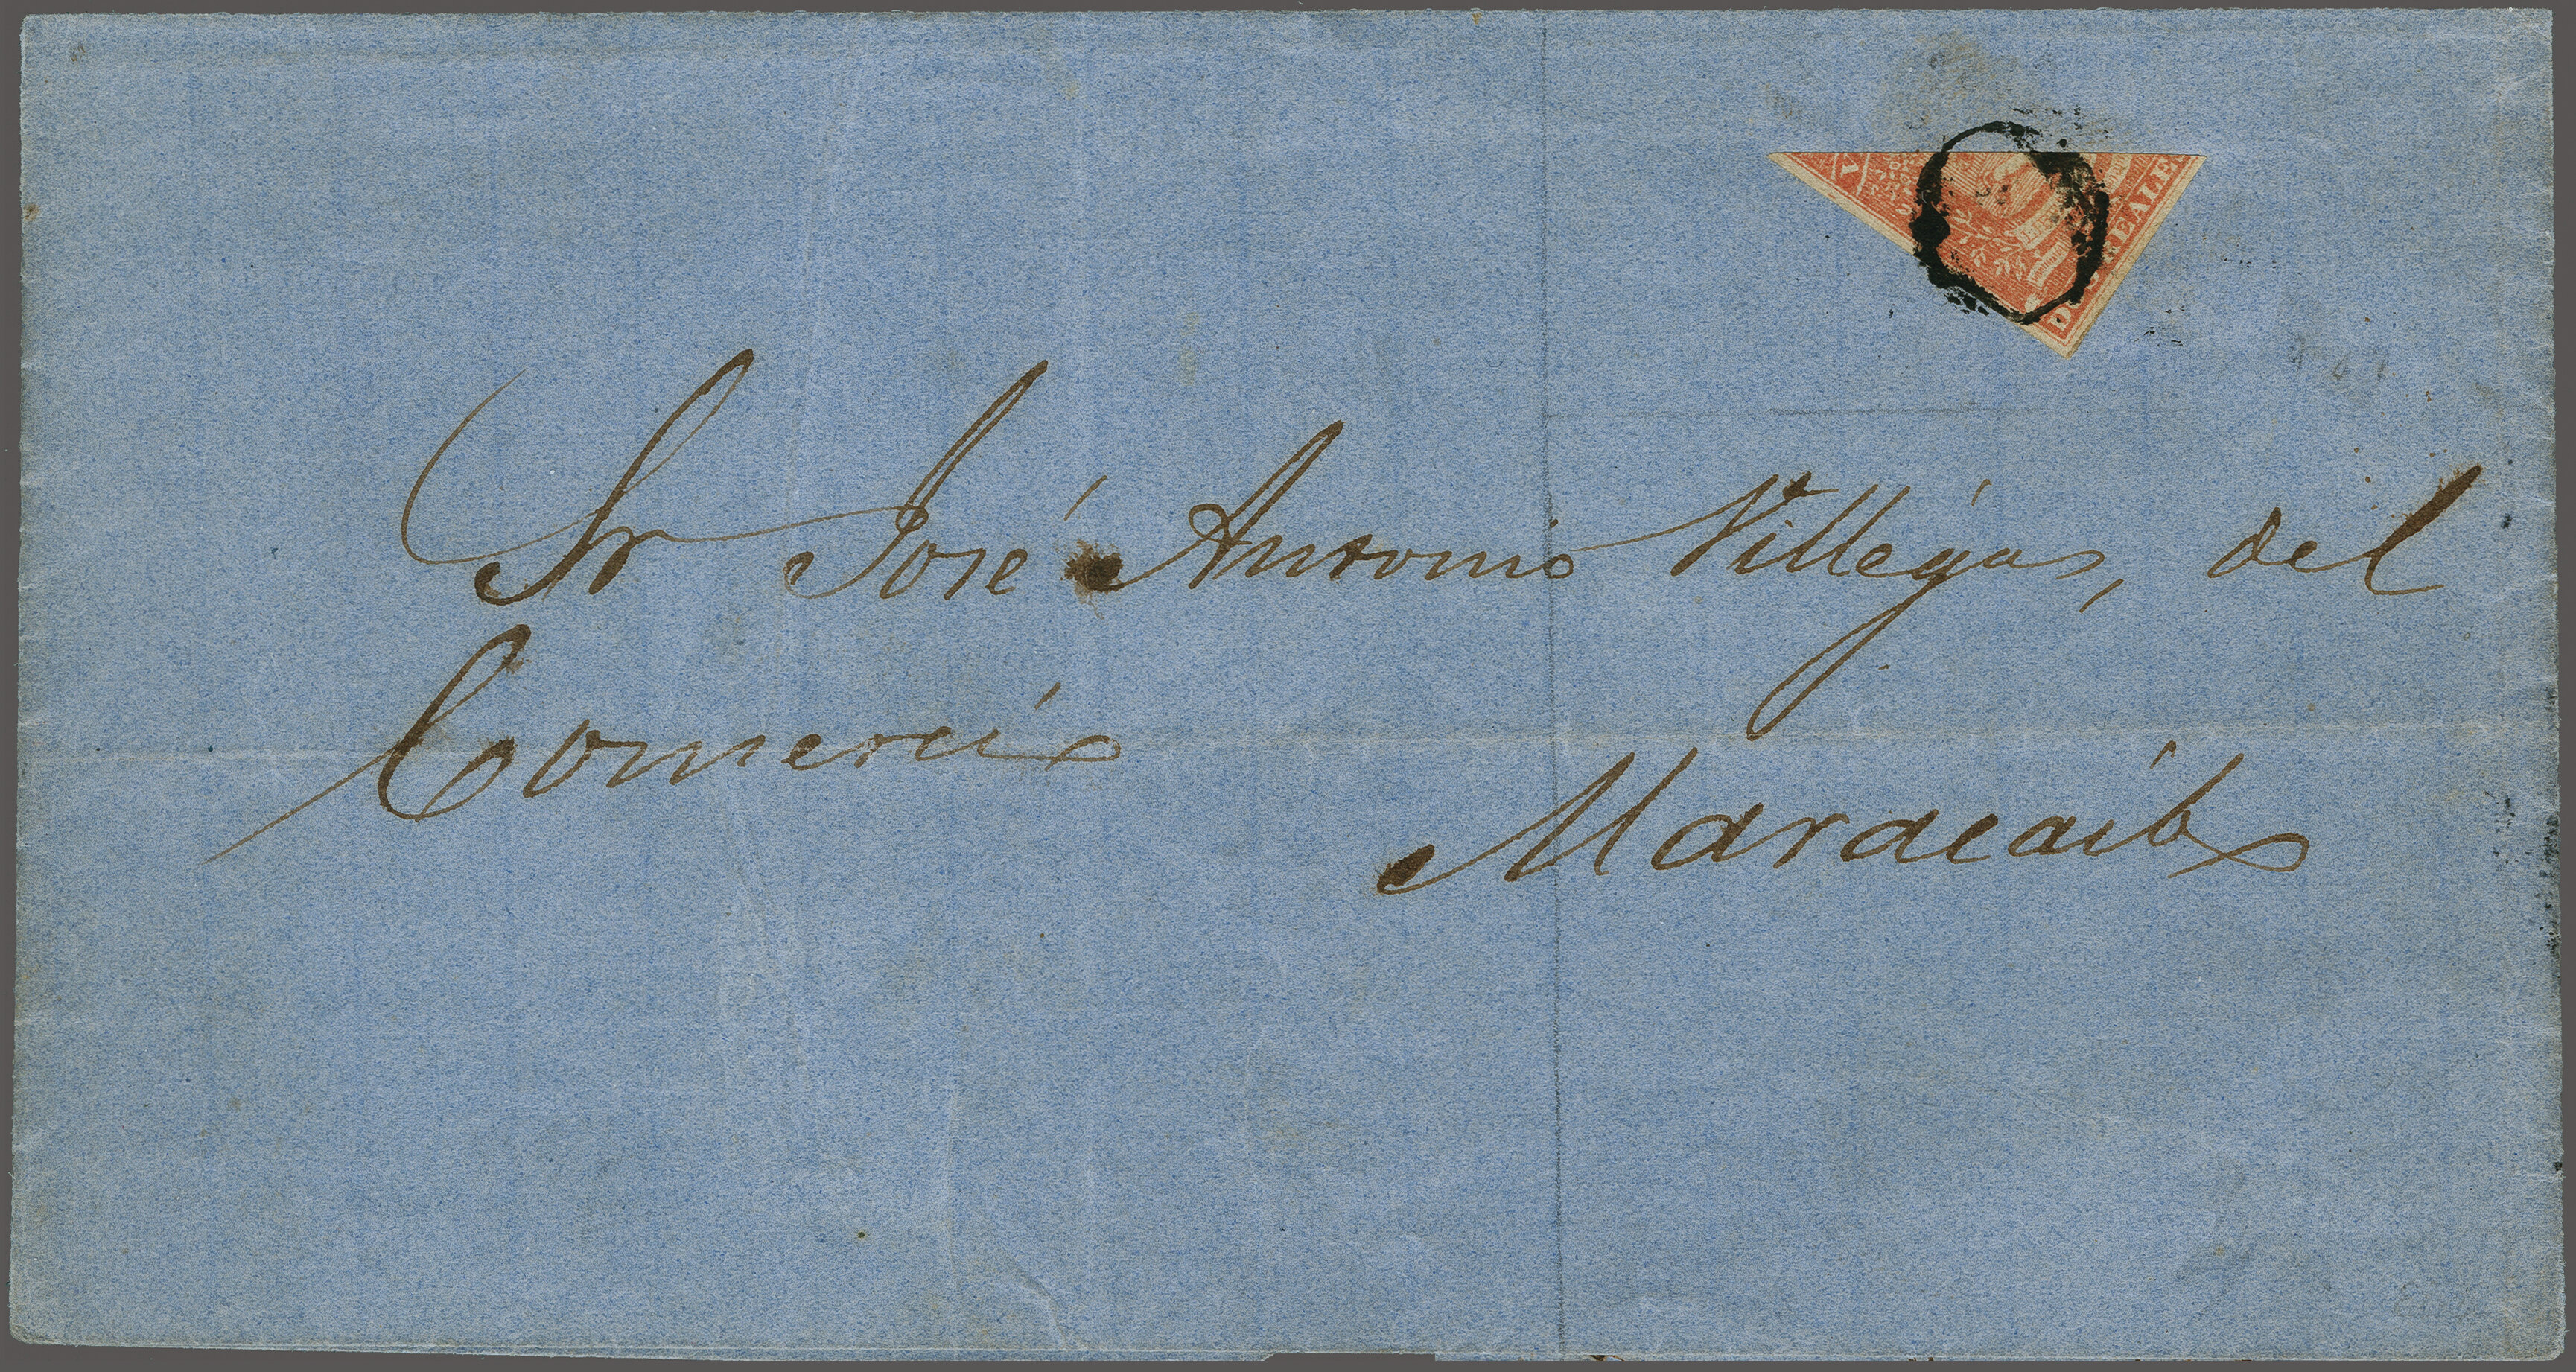 V
D REALE
Sr José Antonio Villégas, del
Comercio
Maracaibo